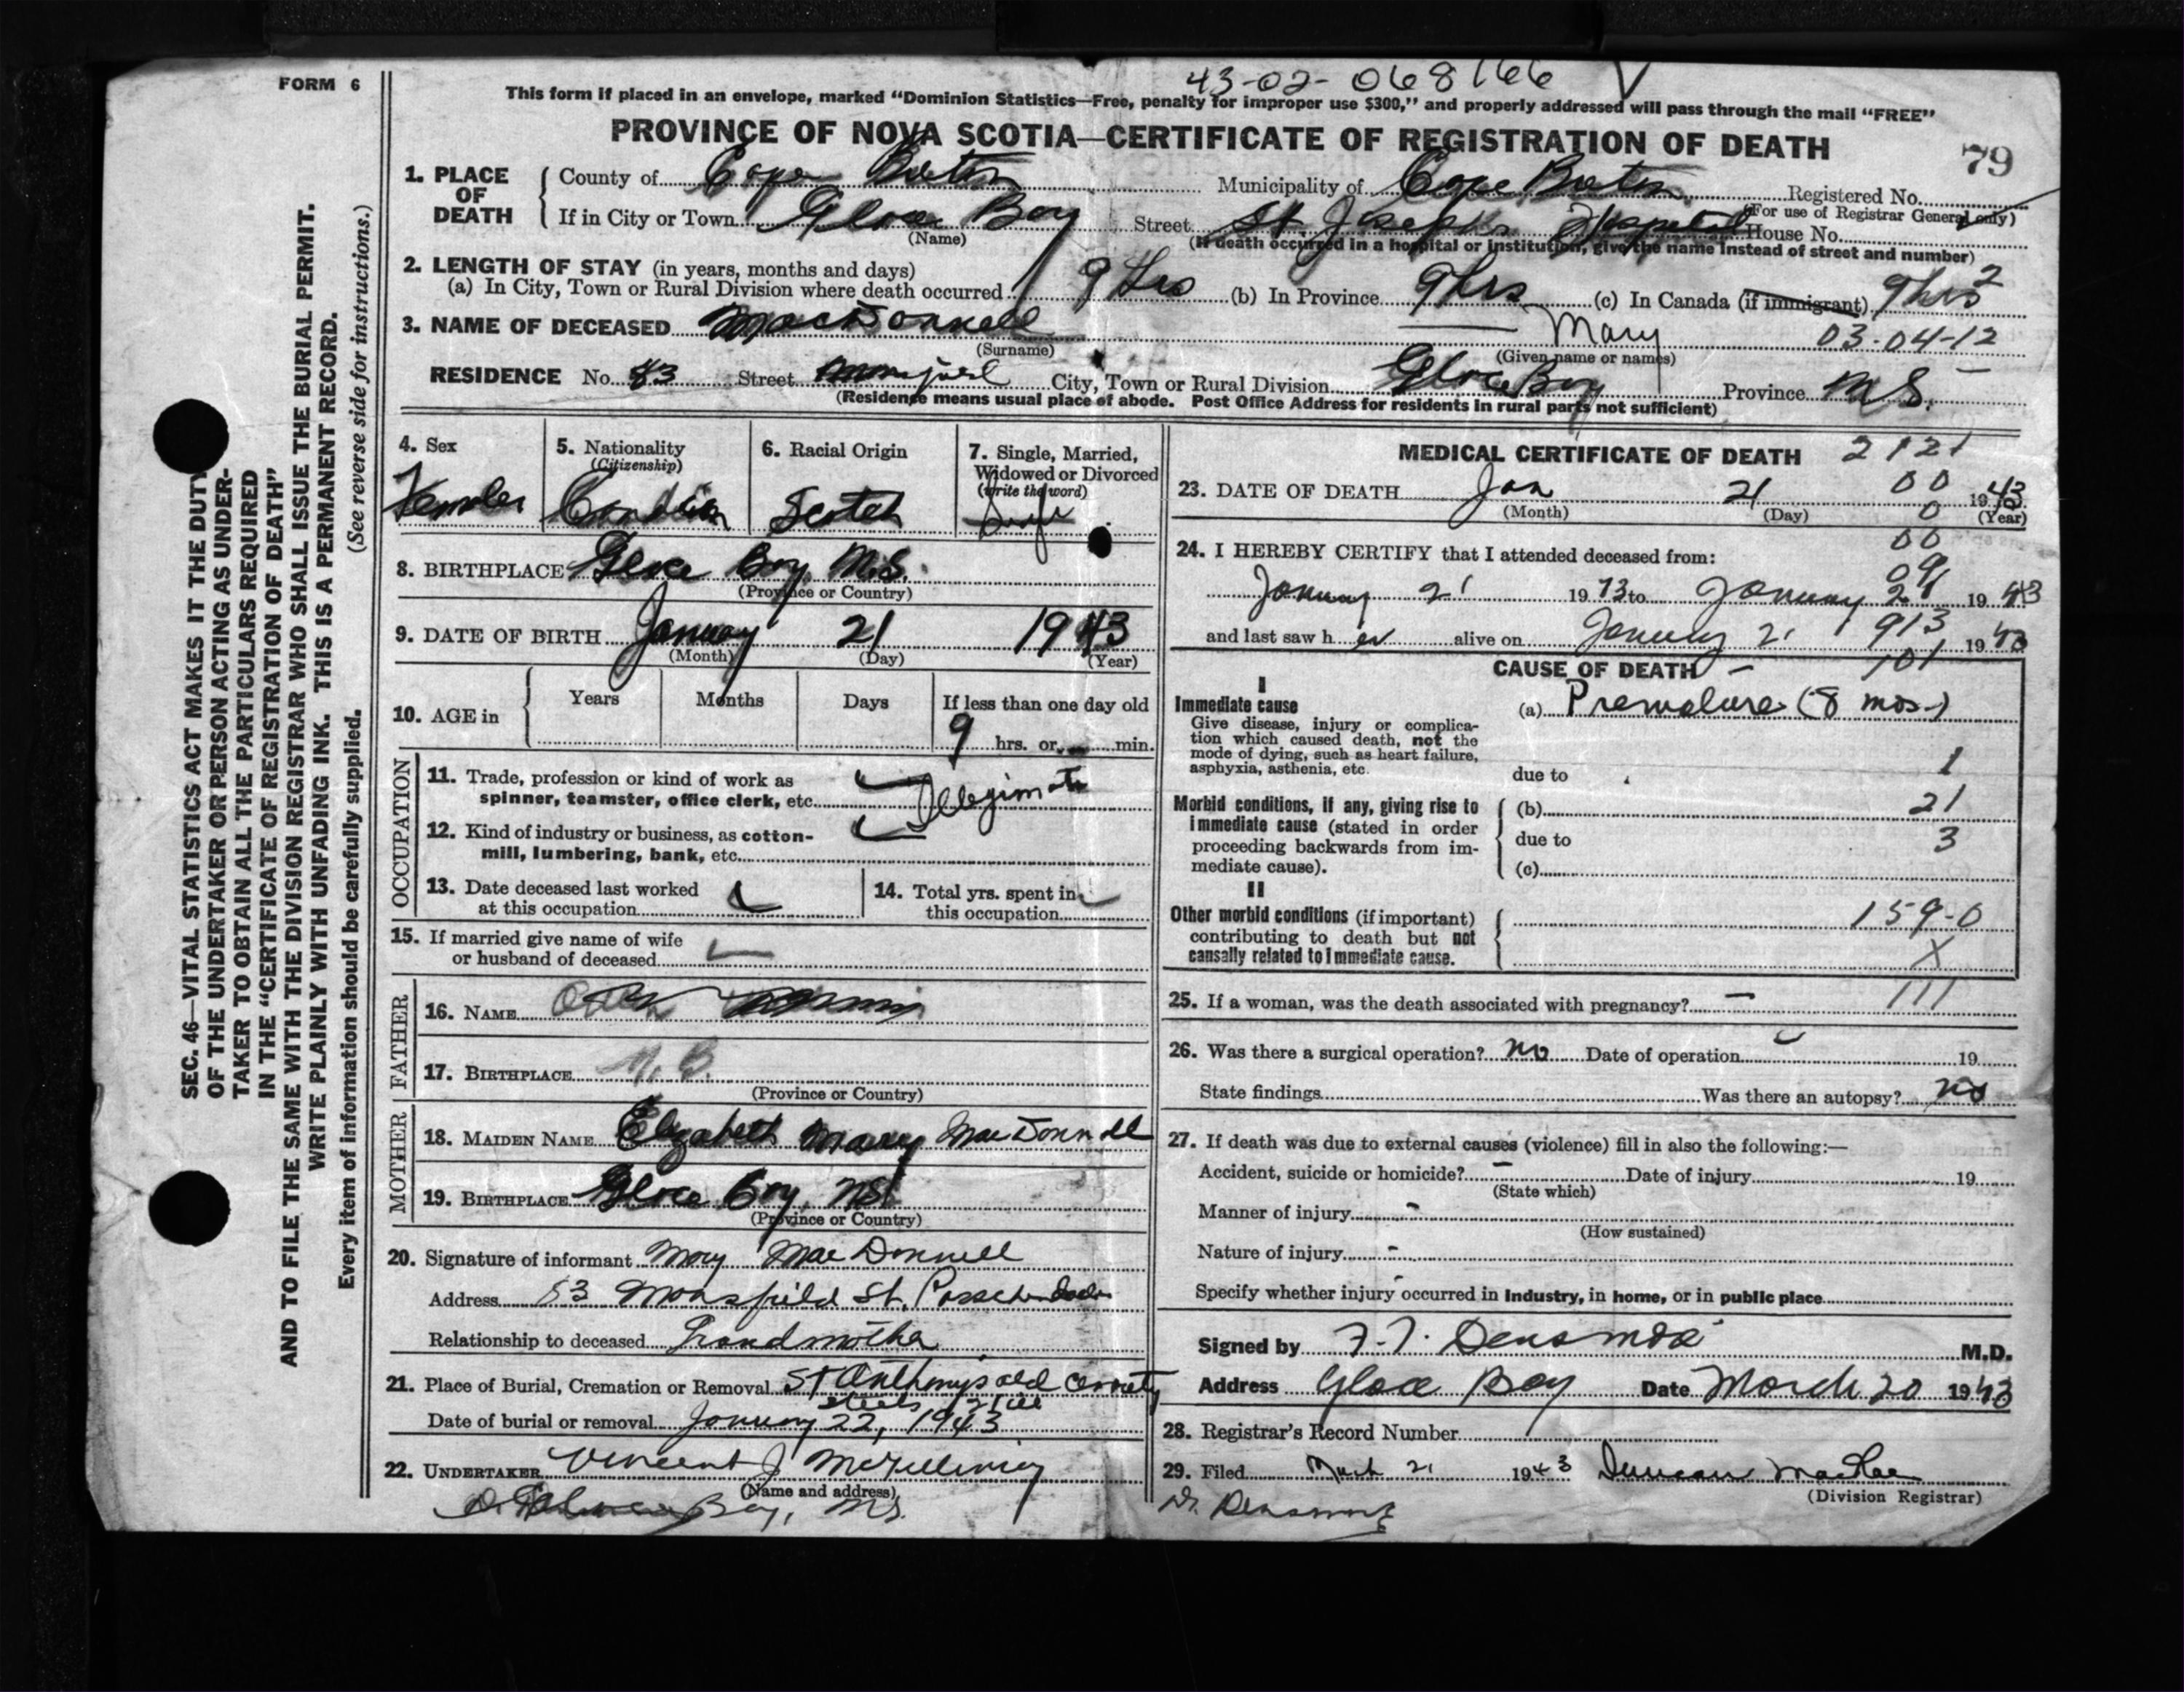 43-02-068166
FORM 6
This form if placed in an envelope, marked "Dominion Statistics—Free, penalty for improper use $300," and properly addressed will pass through the mail "FREE"
PROVINCE OF NOVA SCOTIA—CERTIFICATE OF REGISTRATION OF DEATH
79
1. PLACE OF DEATH
County of Cape Breton Municipality of Cape Breton Registered No.
(For use of Registrar General only)
If in City or Town Glace Bay Street St. Joseph's Hospital House No.
(Name) (If death occurred in a hospital or institution, give the name instead of street and number)
2. LENGTH OF STAY (in years, months and days)
(a) In City, Town or Rural Division where death occurred 9 hrs (b) In Province 9 hrs (c) In Canada (if immigrant) 9 hrs 2
3. NAME OF DECEASED MacDonnell Mary 03-04-12
(Surname) (Given name or names)
RESIDENCE No. 83 Street City, Town or Rural Division Glace Bay Province N.S.
(Residence means usual place of abode. Post Office Address for residents in rural parts not sufficient)
4. Sex
Female
5. Nationality
(Citizenship)
Canadian
6. Racial Origin
Scotch
7. Single, Married,
Widowed or Divorced
(write the word)
Single
8. BIRTHPLACE Glace Bay, N.S.
(Province or Country)
9. DATE OF BIRTH January 21 1943
(Month) (Day) (Year)
10. AGE in
Years Months Days If less than one day old
9 hrs. or min.
OCCUPATION
11. Trade, profession or kind of work as
spinner, teamster, office clerk, etc.
Illegimate
12. Kind of industry or business, as cotton-
mill, lumbering, bank, etc.
13. Date deceased last worked
at this occupation
14. Total yrs. spent in
this occupation
15. If married give name of wife
or husband of deceased
FATHER
16. NAME
17. BIRTHPLACE N.B.
(Province or Country)
MOTHER
18. MAIDEN NAME Elizabeth Mary MacDonnell
19. BIRTHPLACE Glace Bay, N.S.
(Province or Country)
20. Signature of informant Mary MacDonnell
Address 83 Mansfield St.
Relationship to deceased Grandmother
21. Place of Burial, Cremation or Removal St Anthony's old
Date of burial or removal January 22, 1943
22. UNDERTAKER Vincent J McGillivray
(Name and address)
Bay, N.S.
MEDICAL CERTIFICATE OF DEATH 2121
23. DATE OF DEATH Jan 21 00 1943
(Month) (Day) 0 (Year)
00
24. I HEREBY CERTIFY that I attended deceased from:
09
January 21 1943 to January 21 1943
and last saw her alive on January 21 913 1943
CAUSE OF DEATH 101
I
Immediate cause
Give disease, injury or complica-
tion which caused death, not the
mode of dying, such as heart failure,
asphyxia, asthenia, etc.
(a) Premature (8 mos.)
due to 1
Morbid conditions, if any, giving rise to
immediate cause (stated in order
proceeding backwards from im-
mediate cause).
(b) 21
due to 3
(c)
II
Other morbid conditions (if important)
contributing to death but not
causally related to immediate cause.
159-0
X
25. If a woman, was the death associated with pregnancy? — 111
26. Was there a surgical operation? no Date of operation 19
State findings Was there an autopsy? no
27. If death was due to external causes (violence) fill in also the following:—
Accident, suicide or homicide? — Date of injury 19
(State which)
Manner of injury -
(How sustained)
Nature of injury -
Specify whether injury occurred in industry, in home, or in public place
Signed by F.T. Densmore M.D.
Address Glace Bay Date March 20 1943
28. Registrar's Record Number
29. Filed March 21 1943 Duncan MacRae
(Division Registrar)
Dr. Densmore
SEC. 46—VITAL STATISTICS ACT MAKES IT THE DUTY
OF THE UNDERTAKER OR PERSON ACTING AS UNDER-
TAKER TO OBTAIN ALL THE PARTICULARS REQUIRED
IN THE "CERTIFICATE OF REGISTRATION OF DEATH"
AND TO FILE THE SAME WITH THE DIVISION REGISTRAR WHO SHALL ISSUE THE BURIAL PERMIT.
WRITE PLAINLY WITH UNFADING INK. THIS IS A PERMANENT RECORD.
Every item of information should be carefully supplied. (See reverse side for instructions.)